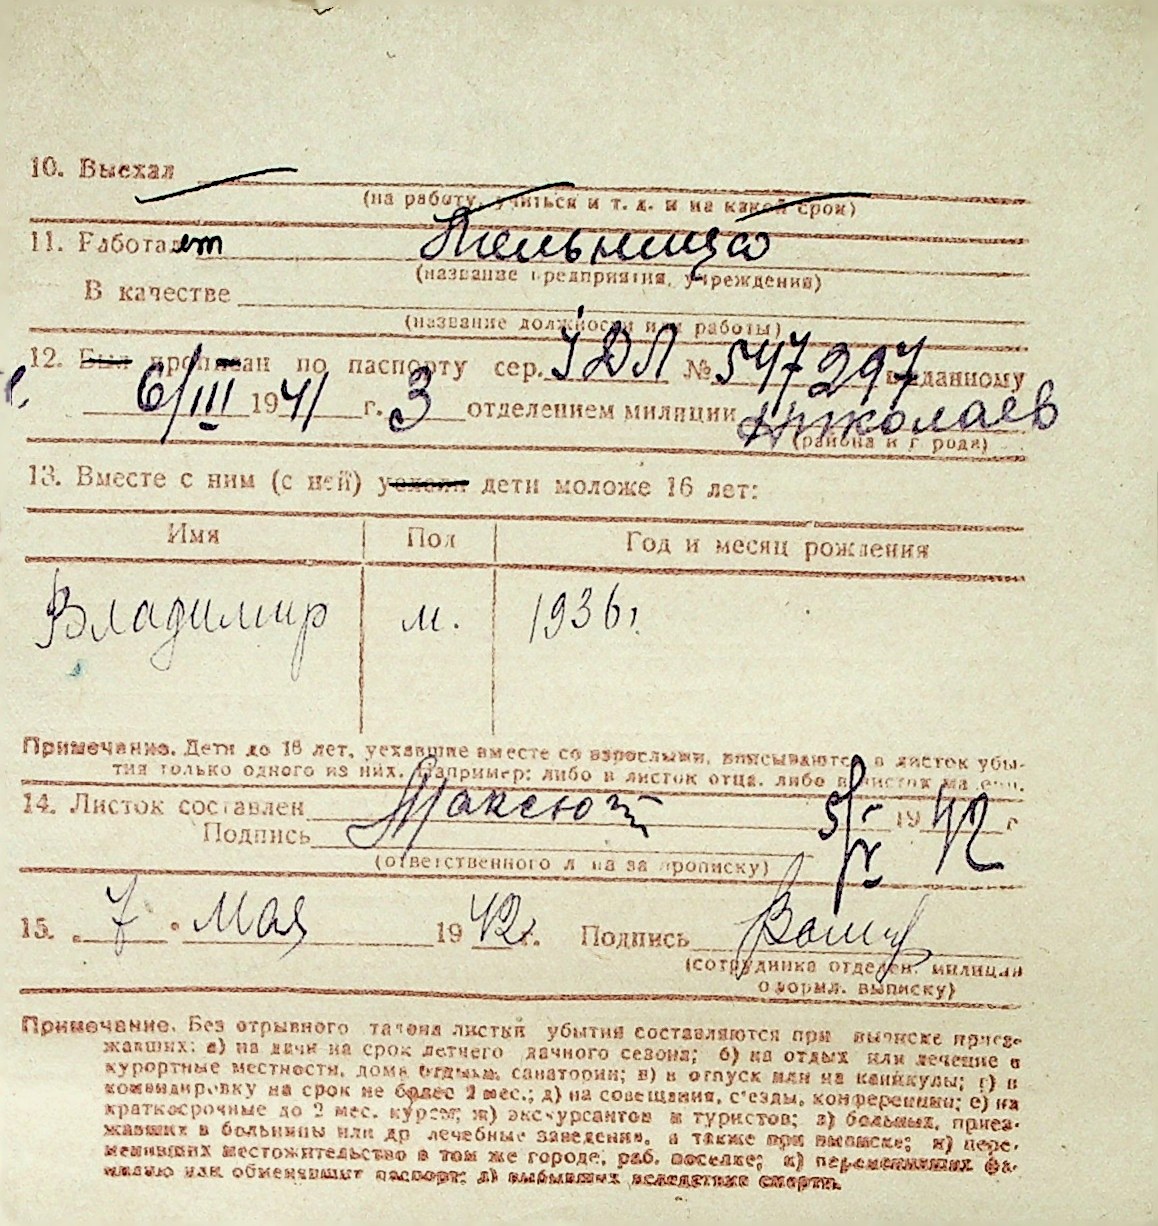 10. Выехал
(на работу, учиться и т. д. и на какой срок)
11. Работает
(название предприятия, учреждения)
В качестве
(название должности или работы)
12. Был прописан по паспорту сер. № 547297 выданному
6/III 1941 г. 3 отделением милиции Николаев
(района и города)
13. Вместе с ним (с ней) уехали дети моложе 16 лет:
Имя Пол Год и месяц рождения
Владимир м. 1936г.
Примечание. Дети до 16 лет, уехавшие вместе со взрослыми, вписываются в листок убы-
тия только одного из них. Например: либо в листок отца, либо в листок матери.
14. Листок составлен 1942 г
Подпись
(ответственного лица за прописку)
15. „7" Мая 1942 г. Подпись
(сотрудника отделен. милиции
оформл. выписку)
Примечание. Без отрывного талона листки убытия составляются при выписке приез-
жавших: а) на дачи на срок летнего дачного сезона; б) на отдых или лечение в
курортные местности, дома отдыха, санатории; в) в отпуск или на каникулы; г) в
командировку на срок не более 2 мес.; д) на совещания, съезды, конференции; е) на
краткосрочные до 2 мес. курсы; ж) экскурсантов и туристов; з) больных, приез-
жавших в больницы или др лечебные заведения, а также при выписке; и) пере-
менивших местожительство в том же городе, раб. поселке; к) переменивших фа-
милию или обменявших паспорт; л) выбывших вследствие смерти.